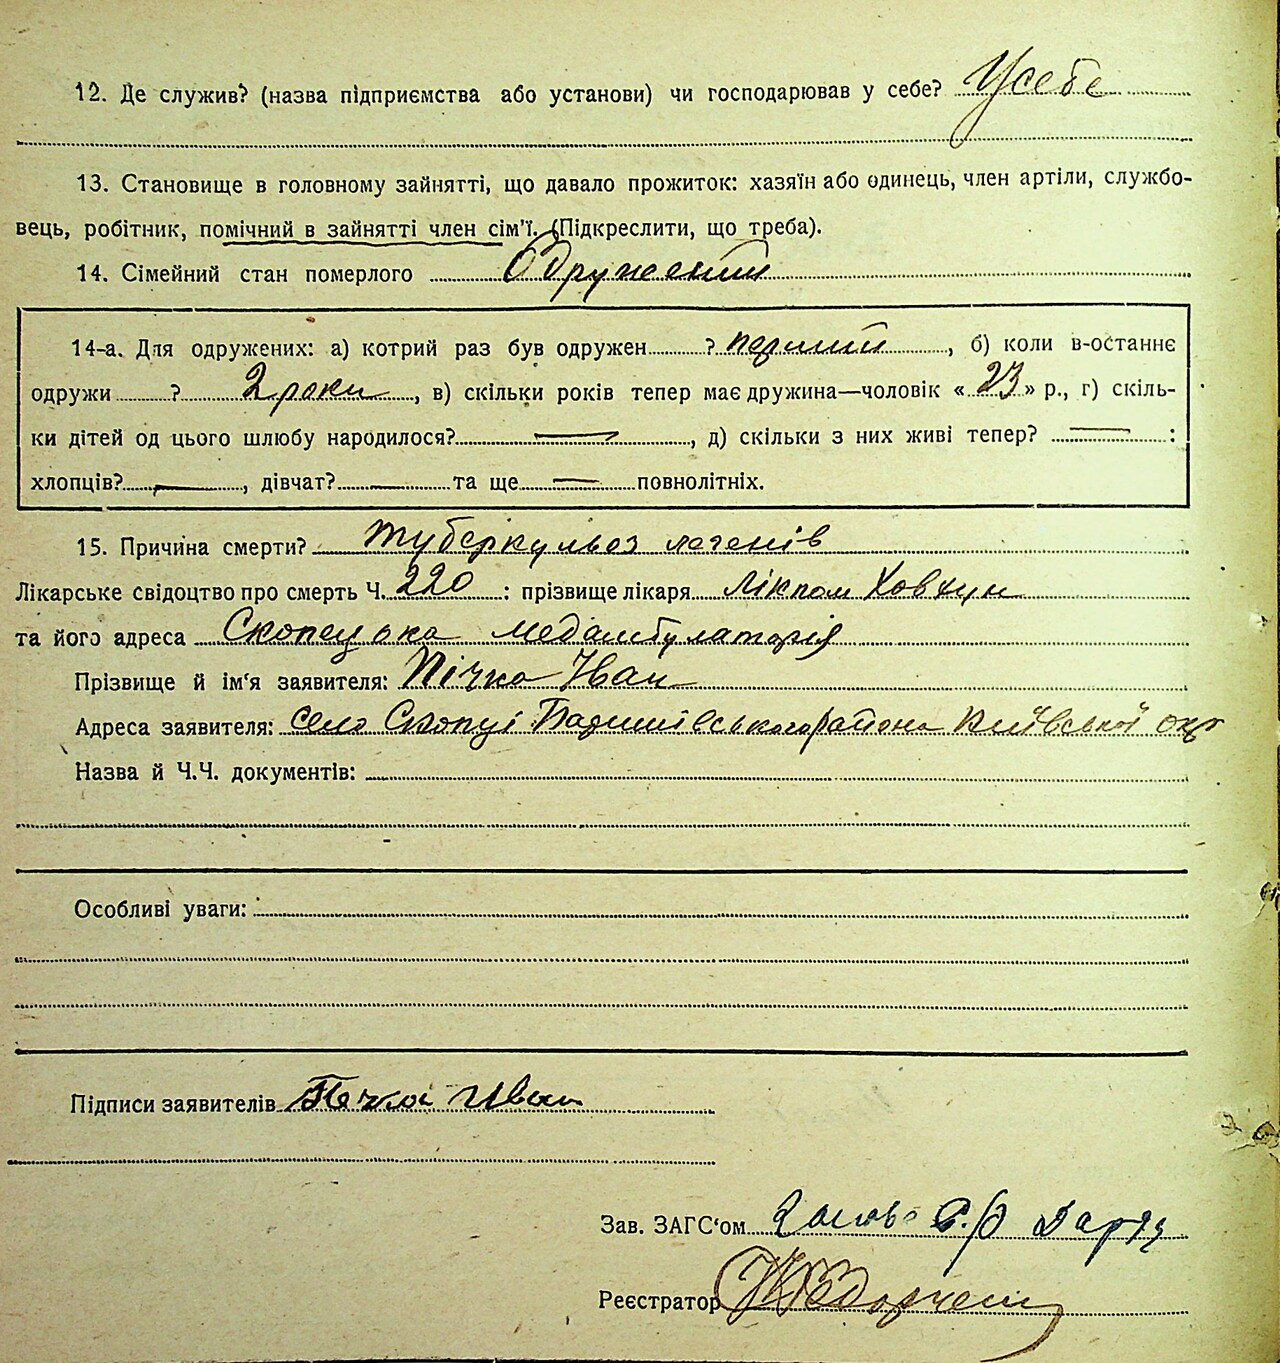 12. Де служив? (назва підприємства або установи) чи господарював у себе? У себе
13. Становище в головному зайнятті, що давало прожиток: хазяїн або одинець, член артіли, службо-
вець, робітник, помічний в зайнятті член сім'ї. (Підкреслити, що треба).
14. Сімейний стан померлого Одружений
14-а. Для одружених: а) котрий раз був одружен ? перший, б) коли в-останнє
одружи ? 2 роки, в) скільки років тепер має дружина—чоловік «23» р., г) скіль-
ки дітей од цього шлюбу народилося? —, д) скільки з них живі тепер? — :
хлопців? —, дівчат? — та ще — повнолітніх.
15. Причина смерти? туберкульоз легенів
Лікарське свідоцтво про смерть Ч. 220 : прізвище лікаря лікпом Ховхун
та його адреса Скопецька медамбулаторія
Прізвище й ім'я заявителя: Пічка Іван
Адреса заявителя: село Скопці Баришівського району Київської окр
Назва й Ч.Ч. документів:
Особливі уваги:
Підписи заявителів Печка Иван
Зав. ЗАГС'ом Голова С/Р
Реєстратор